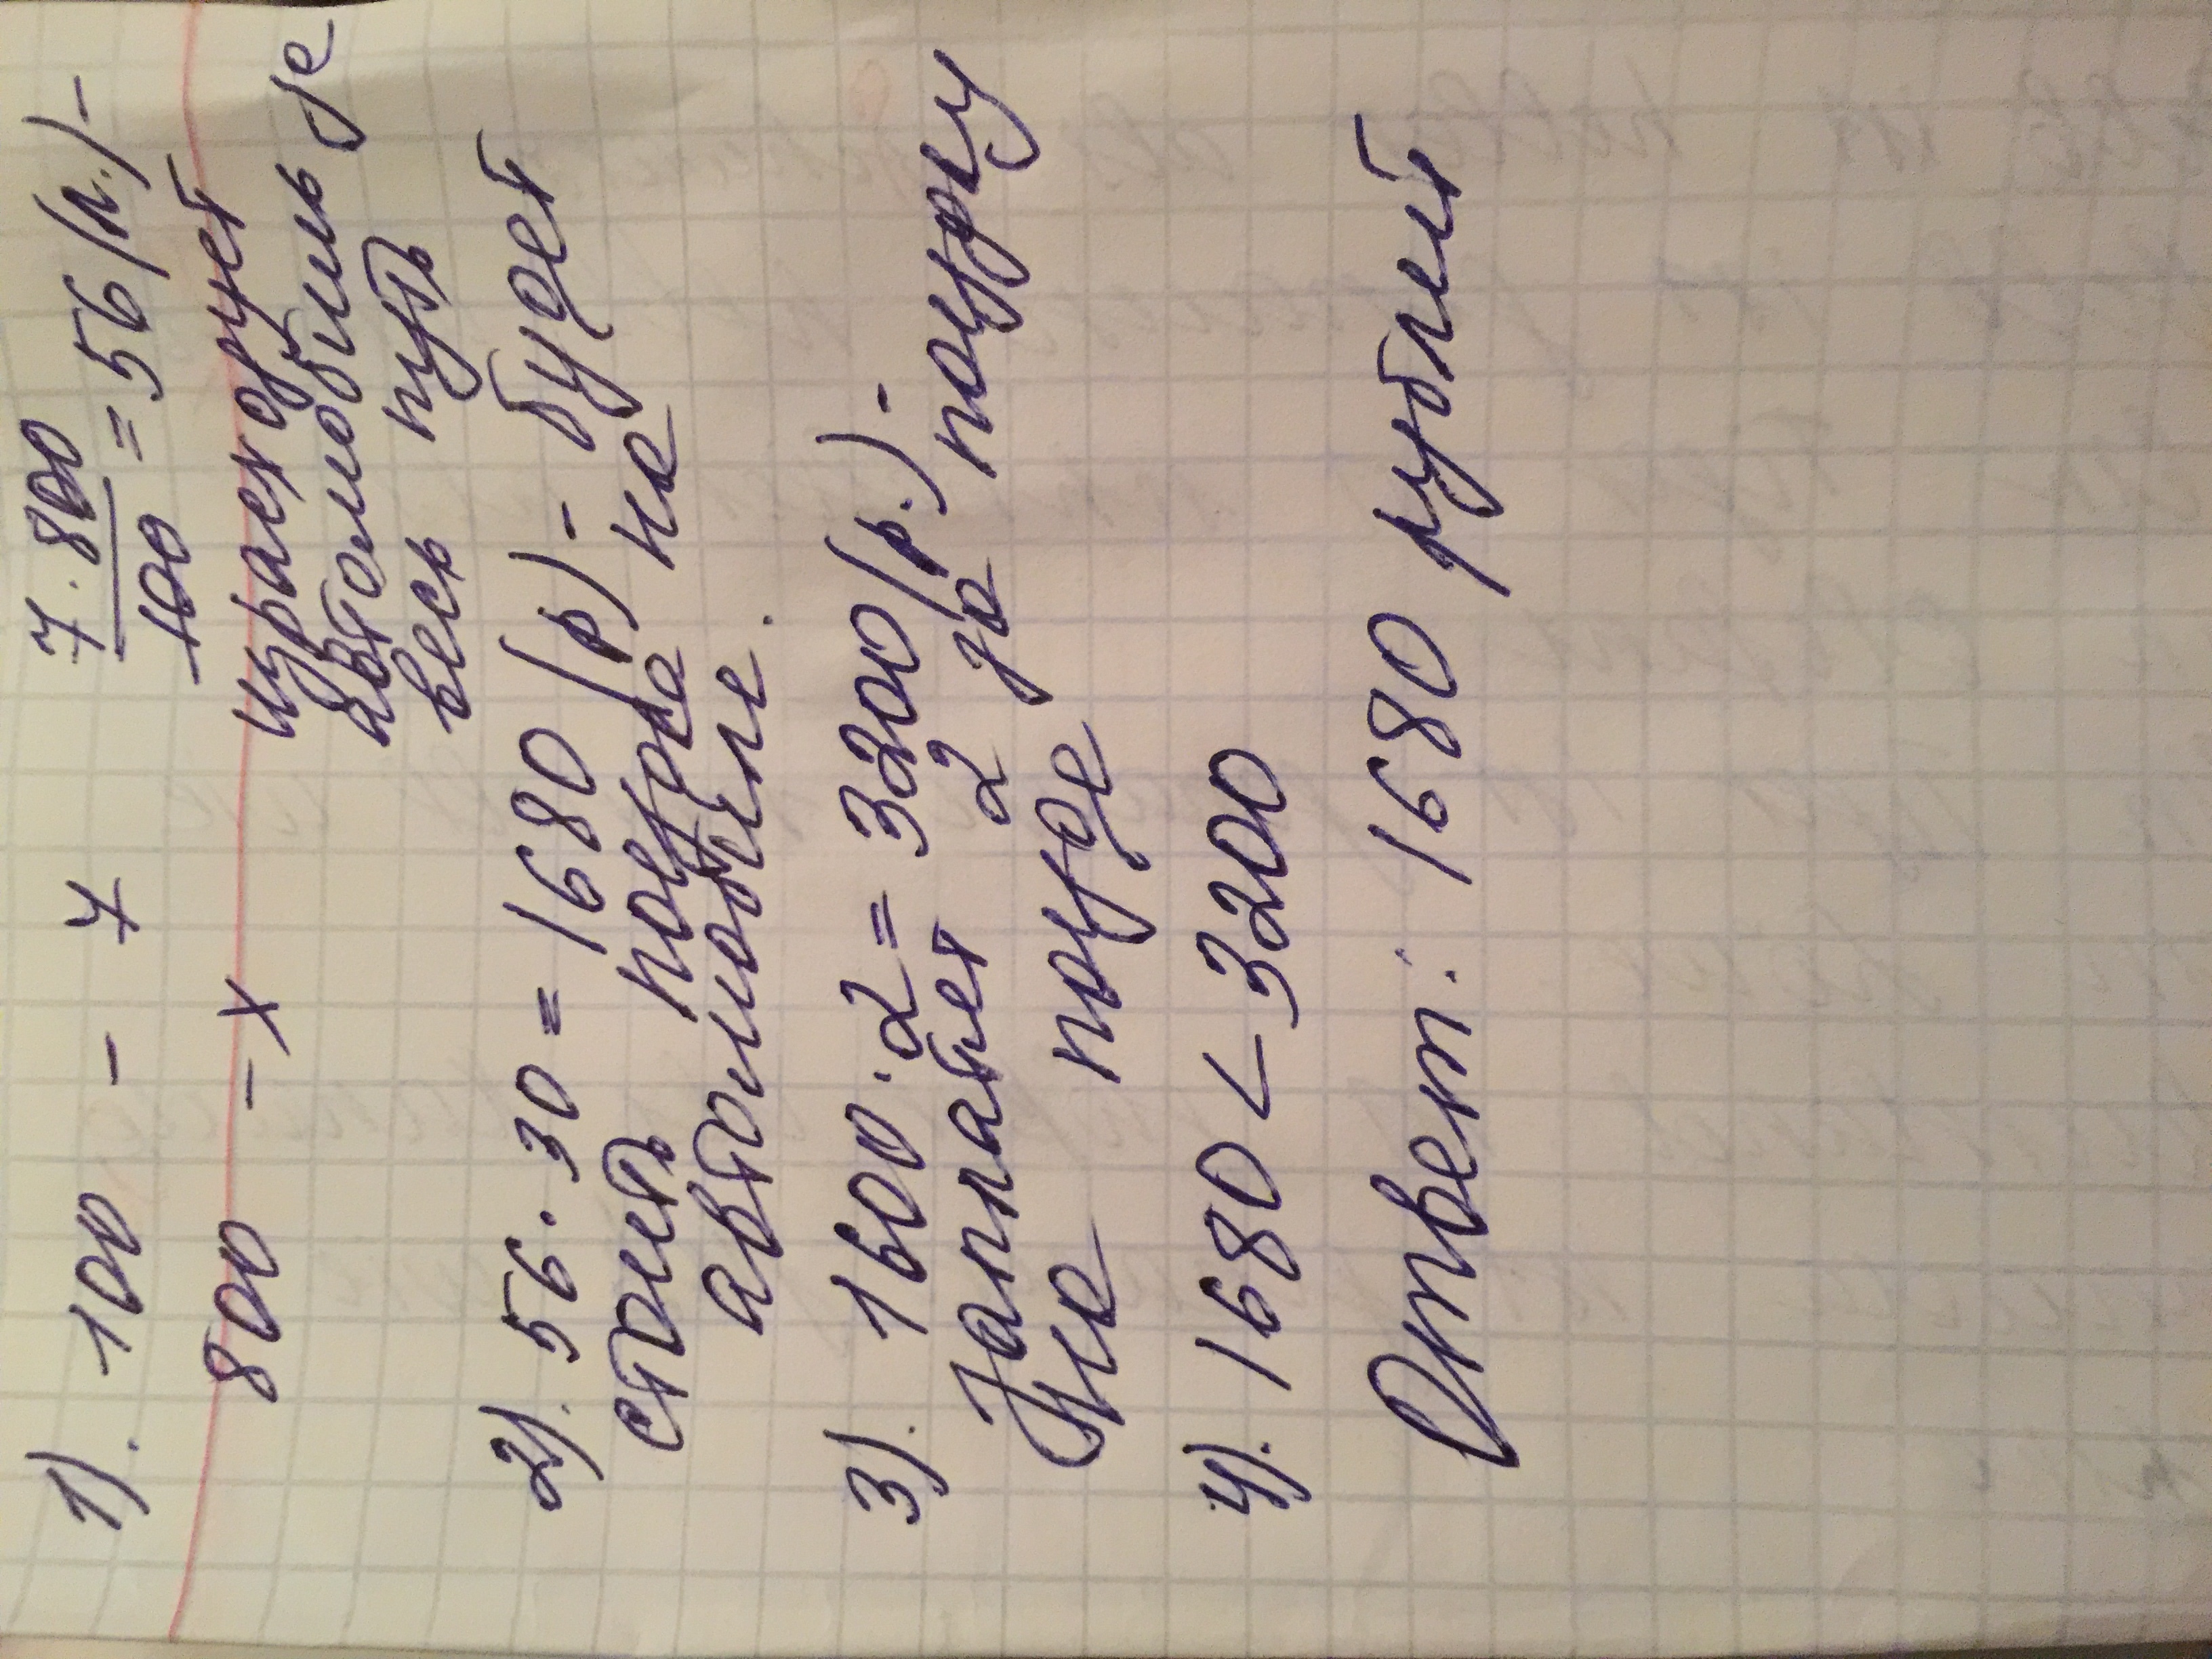 1). 100 - 7 7 · 800 / 100 = 56 (л.) -
800 - x израсходует
автомобиль за
весь путь
2). 56 · 30 = 1680 (р) - будет
стоить поездка на
автомобиле.
3). 1600 · 2 = 3200 (р.) -
заплатят 2 за поездку
на поезде
4). 1680 < 3200
Ответ: 1680 рублей